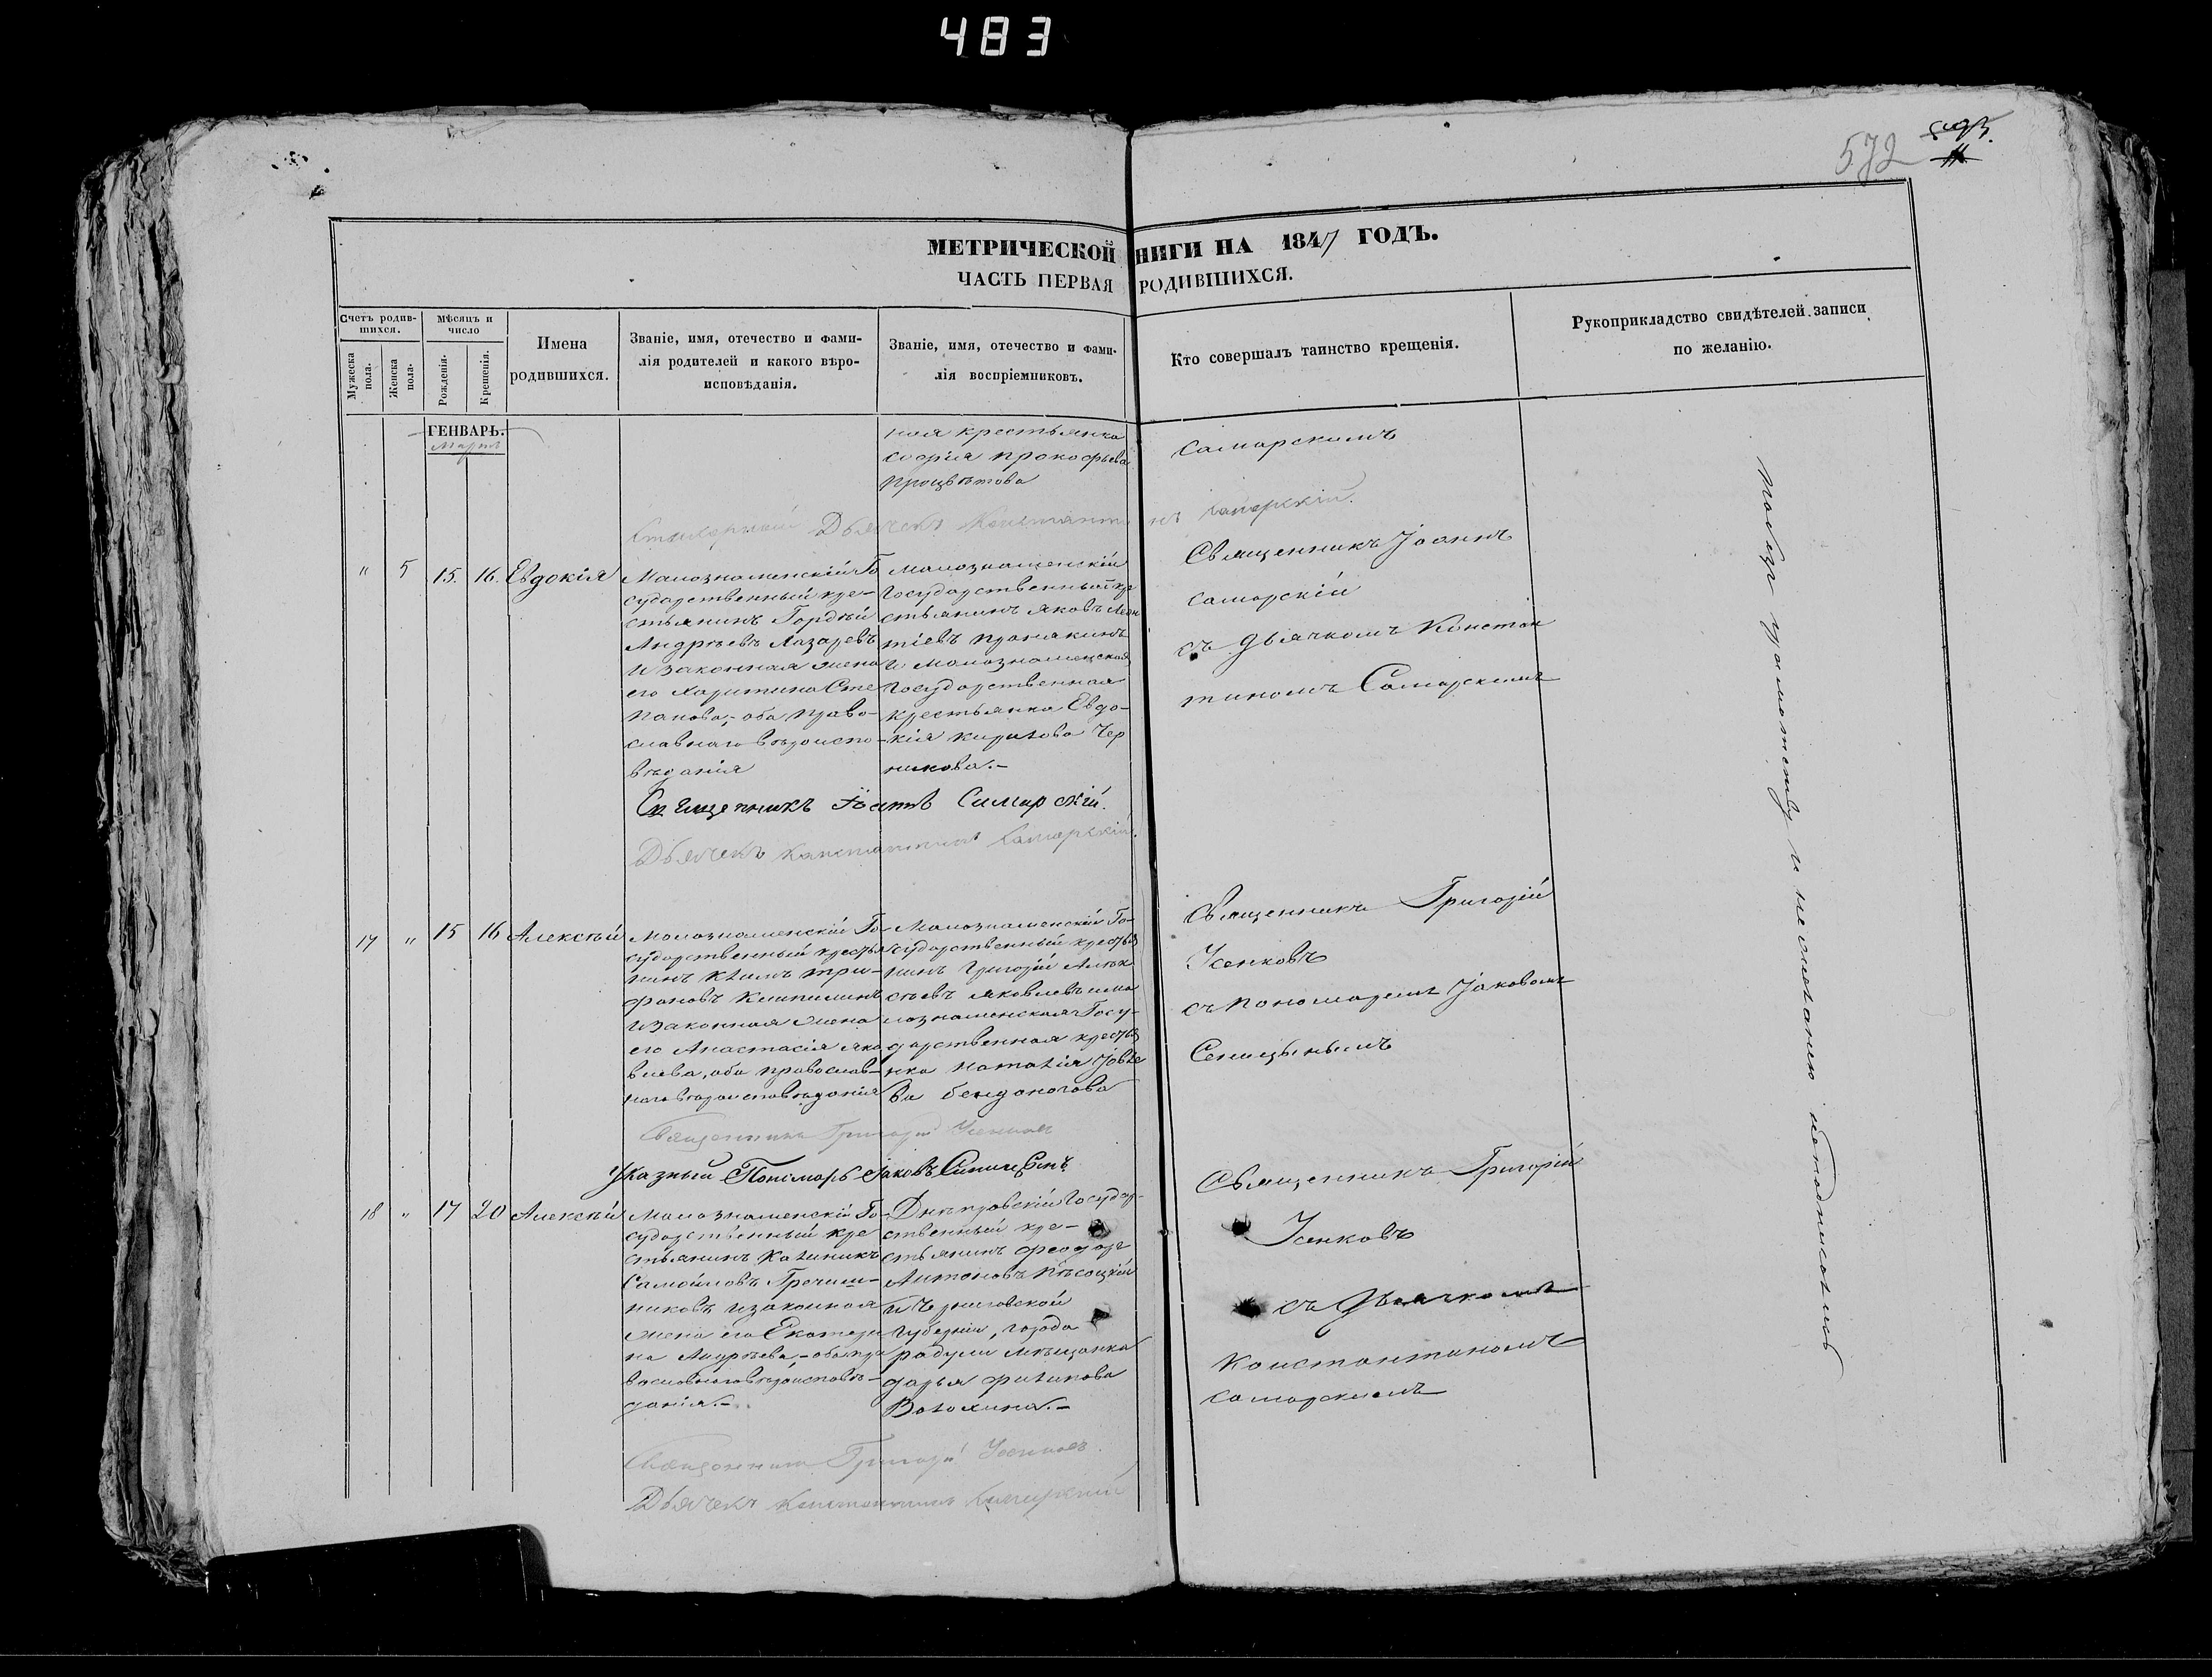 483
572
МЕТРИЧЕСКОЙ КНИГИ НА 1847 ГОДЪ.
ЧАСТЬ ПЕРВАЯ РОДИВШИХСЯ.
Счетъ родив-
шихся.
Мужеска
пола.
Женска
пола.
Мѣсяцъ и
число
Рожденія.
Крещенія.
Имена
родившихся.
Званіе, имя, отечество и фами-
лія родителей и какого вѣро-
исповѣданія.
Званіе, имя, отечество и фами-
лія воспріемниковъ.
Кто совершалъ таинство крещенія.
Рукоприкладство свидѣтелей записи
по желанію.
ГЕНВАРЬ.
Мартъ
ная крестьянка
софія прокофьева
процвѣтова
самарскимъ
Стихарный Дьячекъ Константинъ Самарскій.
" 5 15. 16. Евдокія
Малознаменскій Го
сударственный кре-
стьянинъ Гордѣй
Андрѣевъ Лазаревъ
и законная жена
его Харитина Сте
панова, оба право-
славнаго вѣроиспо-
вѣданія
малознаменскій
государственный кре
стьянинъ яковъ Леон
тіевъ пронякинъ
и малознаменская
государственная
крестьянка Евдо-
кія кирилова Чер
никова.-
Священникъ Іоаннъ
самарскій
съ дьячкомъ Констан
тиномъ Самарскимъ
Священникъ Іоаннъ Самарскій.
Дьячекъ Константинъ Самарскій.
17 " 15 16 Алексѣй
Малознаменскій Го-
сударственный кресть
нинъ Климъ три-
фоновъ
и законная жена
его Анастасія яко
влева, оба православ-
наго вѣроисповѣданія
Малознаменскій Го-
сударственный кресть
нинъ григорій Алек
сѣевъ яковлевъ и ма
лознаменская Госу-
дарственная кресть
нка наталія Іовле
ва
Священникъ Григорій
Усенковъ
съ пономаремъ Іаковомъ
Синицынымъ
Священникъ Григорій Усенковъ
Указный Пономарь Іаковъ Синицынъ
18 " 17 20 Алексѣй
Малознаменскій Го-
сударственный кре
стьянинъ Калиникъ
Самойловъ Гречиш-
никовъ и законная
жена его Екатери
на Андрѣева, оба пра
вославнаго вѣроисповѣ-
данія.-
Днѣпровскій Государ-
ственный кре-
стьянинъ феодоръ
Антоновъ пѣсоцкій
и Черниговской
губерніи, города
радули мѣщанка
дарья филипова
Волохина.-
Священникъ Григорій
Усенковъ
съ дьячкомъ
Константиномъ
самарскимъ
Священникъ Григорій Усенковъ.
Дьячекъ Константинъ Самарскій